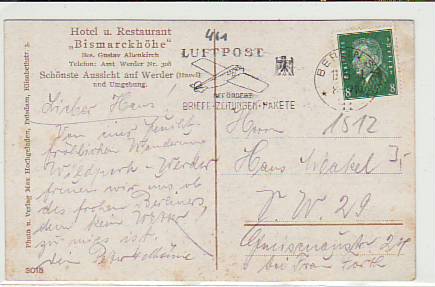 Hotel u. Restaurant
„Bismarckhöhe"
Bes. Gustav Altenkirch
Telefon: Amt Werder Nr. 308
Schönste Aussicht auf Werder (Havel)
und Umgebung.
LUFTPOST
BEFÖRDERT
BRIEFE-ZEITUNGEN-PAKETE
BERLIN
8
8
Lieber Hans!
Von einer feucht
fröhlichen Wanderung
Wildpark - Werder
freuen wir uns, ob
des frohen Berliners,
dem kein Wetter
zu mies ist.
Herrn
1512
Hans
S.W. 29
Gneisenaustr. 24
bei Frau
Photo u. Verlag Max Hochgeladen, Potsdam, Elisabethstr.
3018